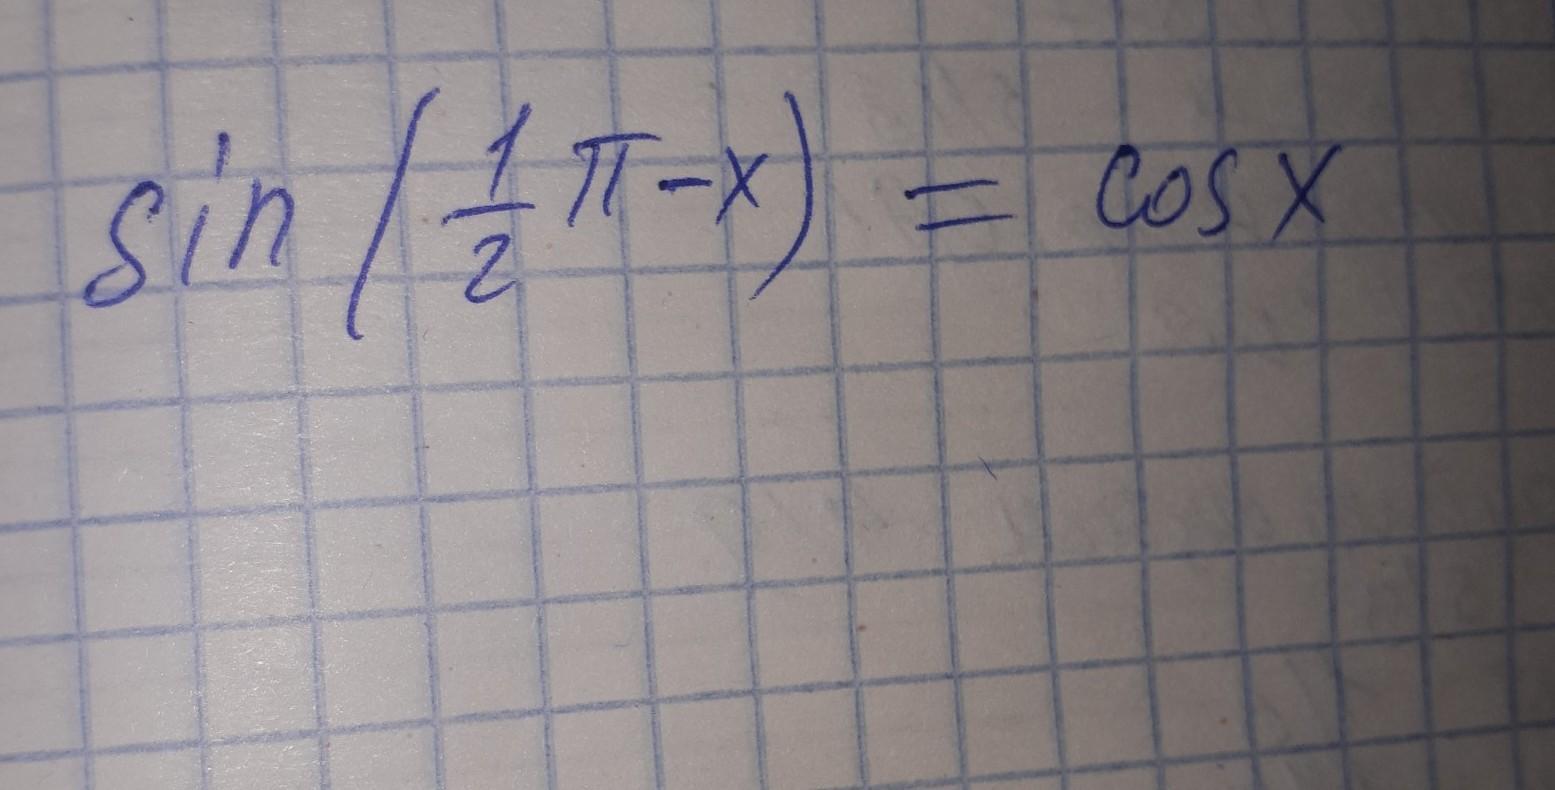 sin (1/2 π - x) = cos x